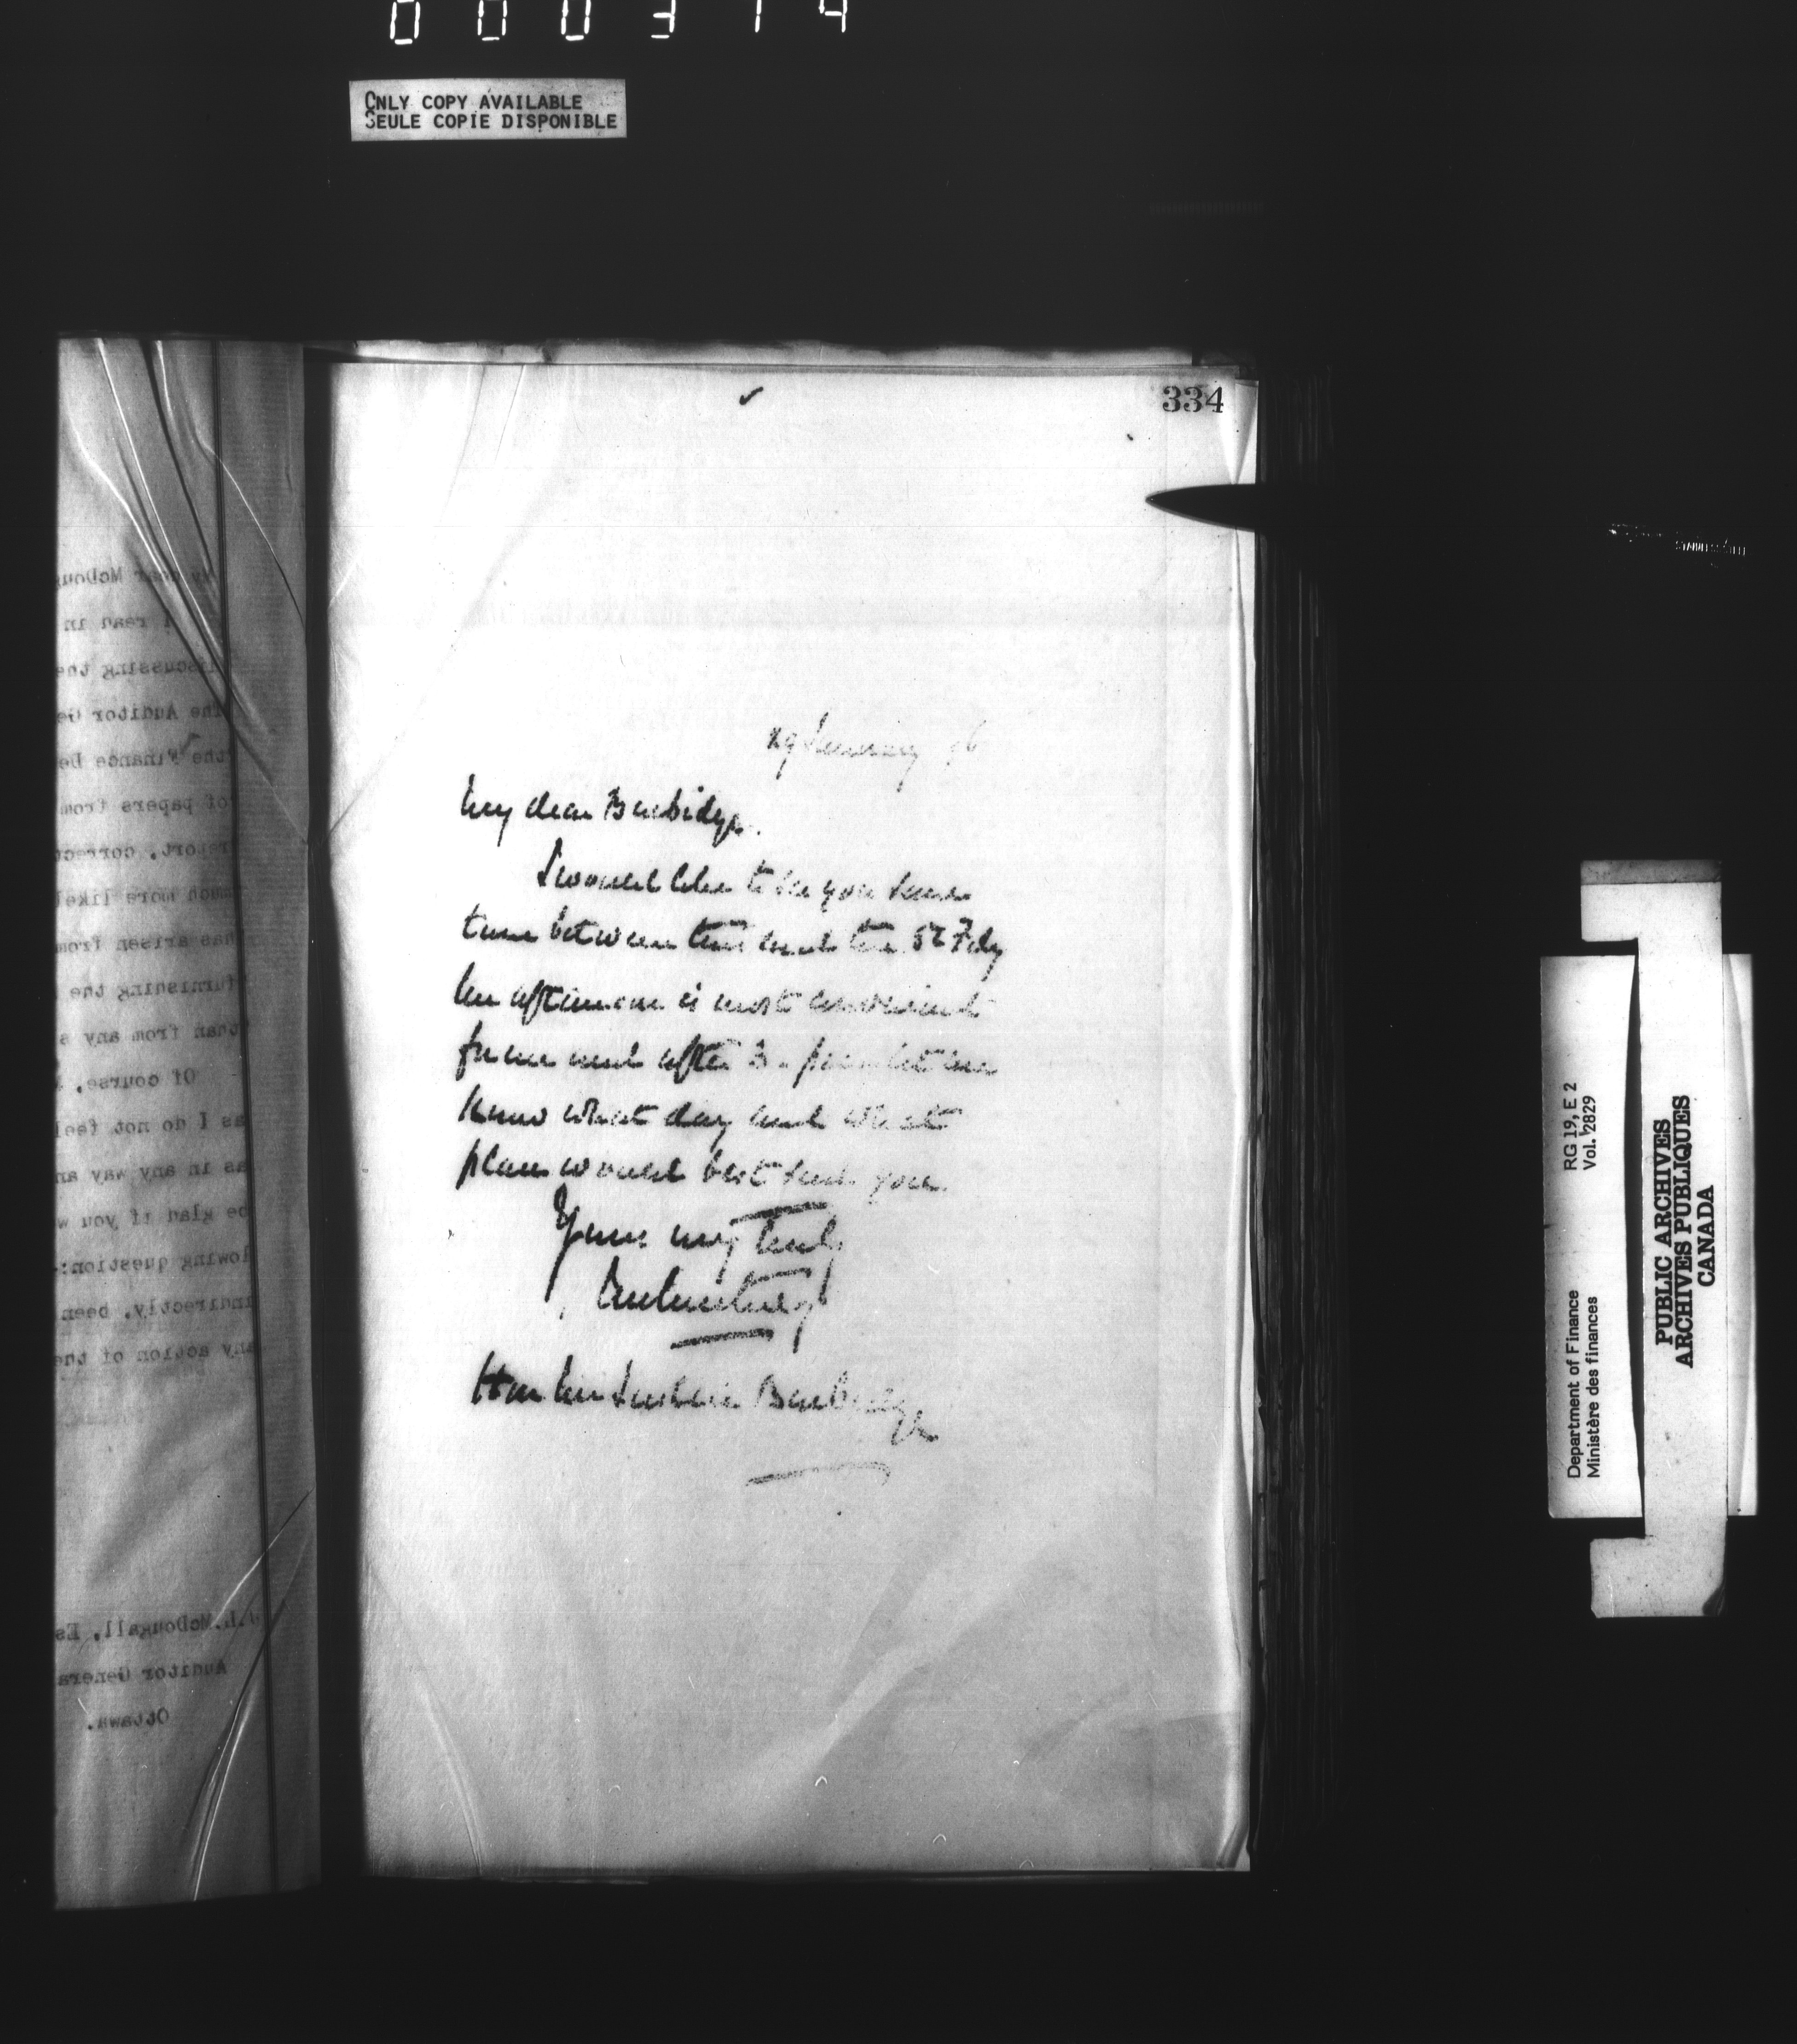 000314
ONLY COPY AVAILABLE
SEULE COPIE DISPONIBLE
334
My dear McDoug
I read in
discussing the
the Auditor Ge
the Finance De
of papers from
report, correct
much more likel
has arisen from
furnishing the
than from any s
Of course,
as I do not feel
as in any way an
be glad if you w
lowing question:-
indirectly, been
any action of the
J.L.McDougall, Es
Auditor Genera
Ottawa.
29 January 96
My dear Burbidge.
I would like to see you some
time between this and the 5th Feby
An afternoon is most convenient
for me and after 3 - let me
know what day and what
place would best suit you
Yours very truly
Courtney
Hon Mr Justice Burbidge
RG 19, E 2
Vol. 2829
Department of Finance
Ministère des finances
PUBLIC ARCHIVES
ARCHIVES PUBLIQUES
CANADA